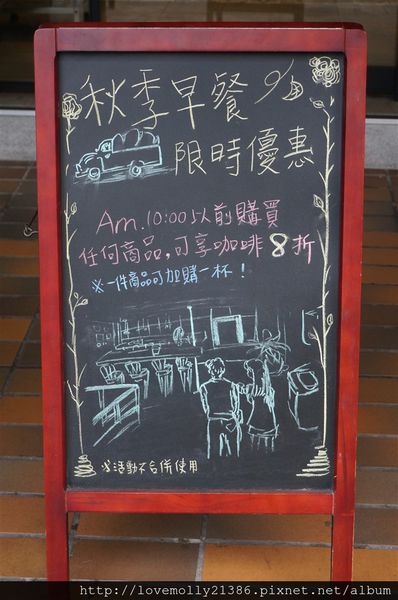 秋季早餐
限時優惠
Am.10:00以前購買
任何商品,可享咖啡8折
※一件商品可加購一杯!
※活動不合併使用
http://lovemolly21386.pixnet.net/album